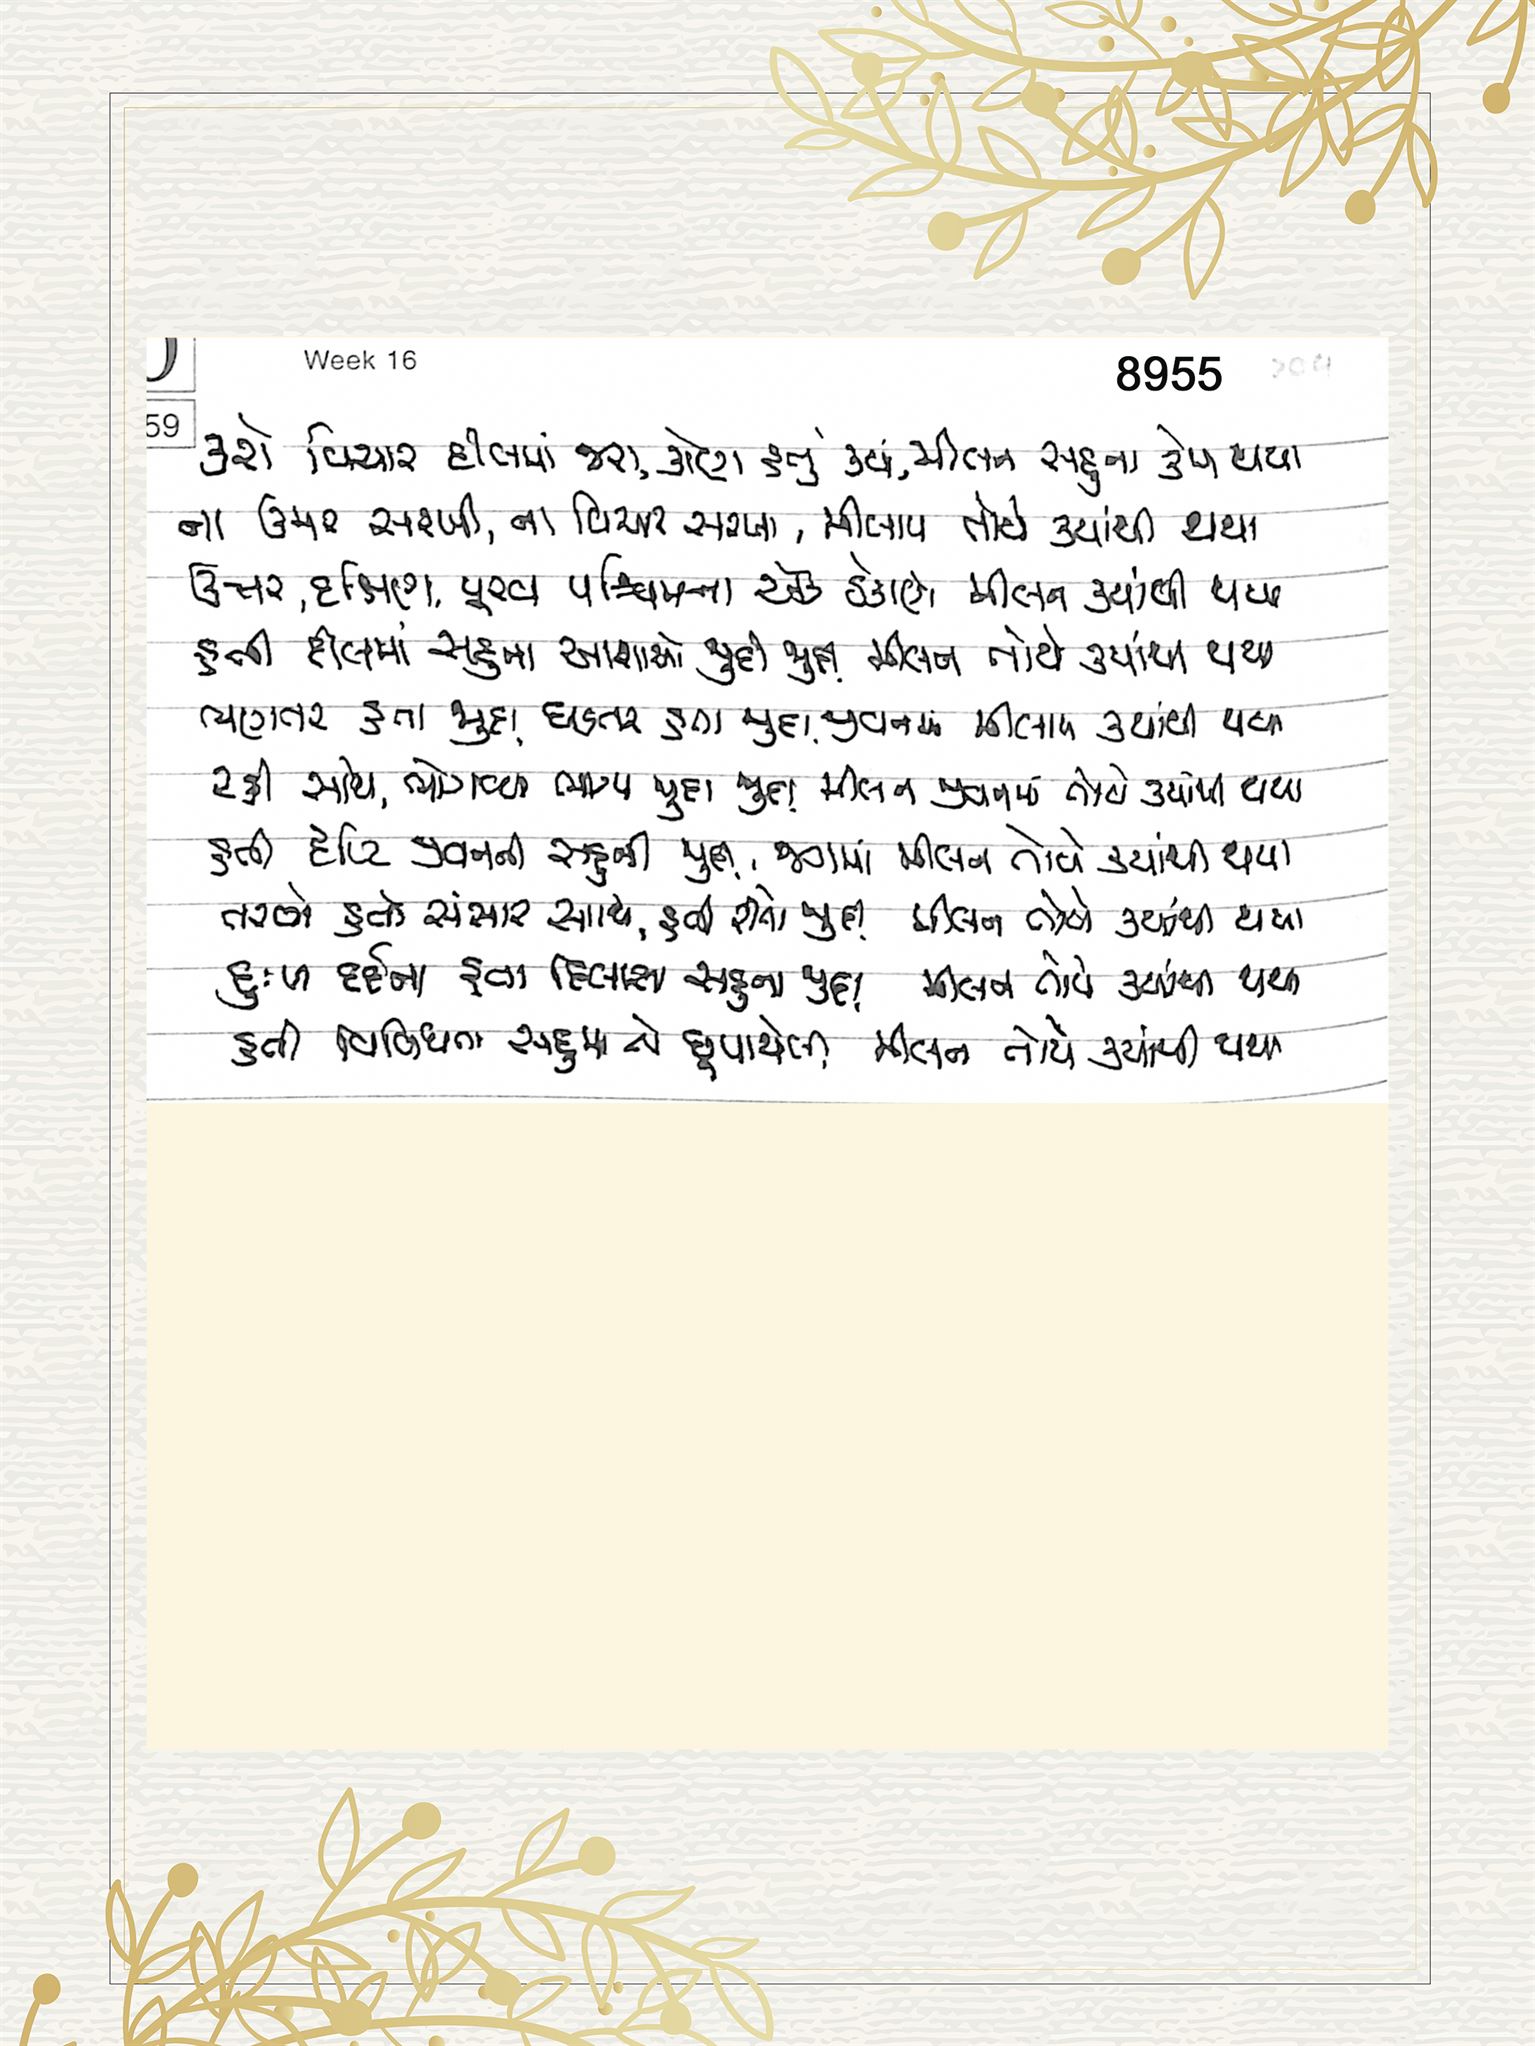 Week 16
8955
59
કરો વિચાર દીલમાં જરા, કોણ હતું ક્યાં, મીલન સહુના કેમ થયા
ના ઉંમર સરખી, ના વિચાર સરખા, મીલાપ તોયે ક્યાંથી થયા
ઉત્તર, દક્ષિણ, પૂરવ પશ્ચિમના એક ઠેકાણે મીલન ક્યાંથી થયા
હતી દીલમાં સહુના આશાઓ જુદી જુદી મીલન તોયે ક્યાંથી થયા
ભણતર હતા જુદા, ઘડતર હતા જુદા, જીવનમાં મીલાપ ક્યાંથી થયા
રહી સાથે, ભોગવ્યા ભાગ્ય જુદા જુદા મીલન જીવનમાં તોયે ક્યાંથી થયા
હતી દૃષ્ટિ જીવનની સહુની જુદી, જગમાં મીલન તોયે ક્યાંથી થયા
તરવો હતો સંસાર સાથે, હતી રીતો જુદી મીલન તોયે ક્યાંથી થયા
દુઃખ દર્દના હતા દિલાસા સહુના જુદા મીલન તોયે ક્યાંથી થયા
હતી વિવિધતા સહુમાં તો છૂપાયેલી મીલન તોયે ક્યાંથી થયા